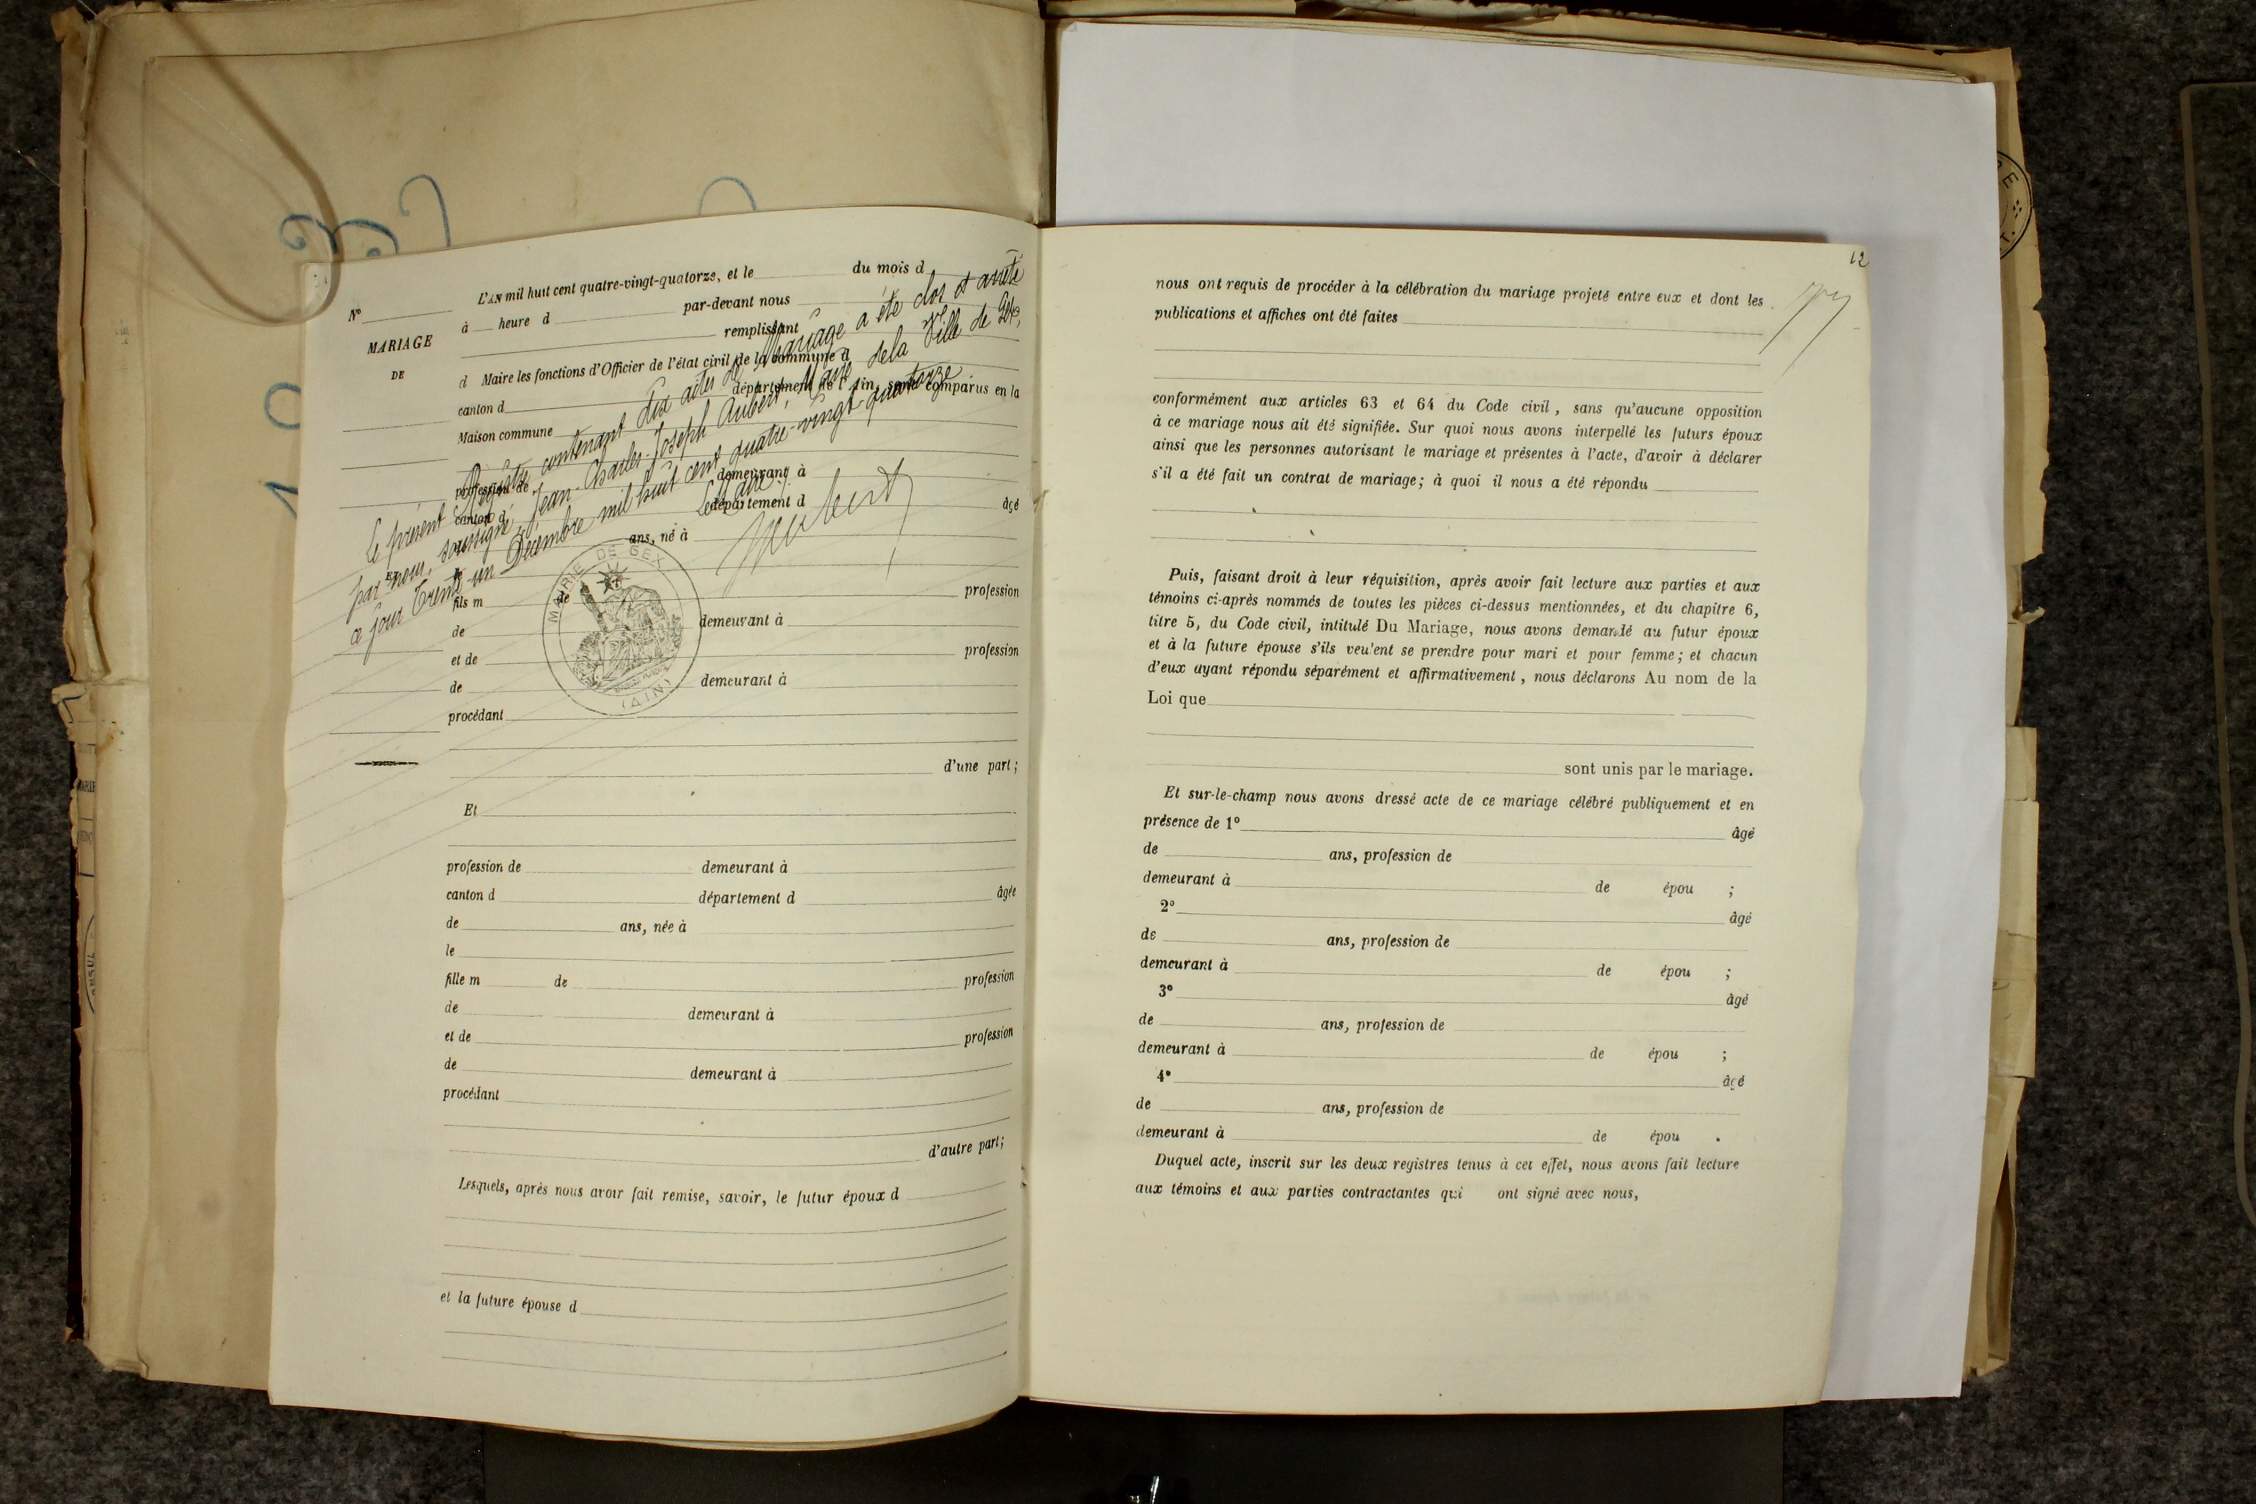 L'AN mil huit cent quatre-vingt-quatorze, et le du mois d
N° à heure d par-devant nous
MARIAGE remplissant
DE d Maire les fonctions d'Officier de l'état civil de la commune d
canton d département de l'Ain, sont comparus en la
Maison commune
profession de demeurant à
canton d département d âgé
ans, né à
ET le
fils m de profession
de demeurant à
et de profession
de demeurant à
procédant
d'une part ;
Le présent Registre contenant dix actes de Mariage a été clos et arrêté
par nous, soussigné, Jean-Charles-Joseph Aubert, Maire de la Ville de Gex,
ce jour Trente un Décembre mil huit cent quatre-vingt-quatorze.
Le Maire,
Aubert
MAIRIE DE GEX
(AIN)
Et
profession de demeurant à
canton d département d âgée
de ans, née à
le
fille m de profession
de demeurant à
et de profession
de demeurant à
procédant
d'autre part ;
Lesquels, après nous avoir fait remise, savoir, le futur époux d
et la future épouse d
12
nous ont requis de procéder à la célébration du mariage projeté entre eux et dont les
publications et affiches ont été faites
conformément aux articles 63 et 64 du Code civil, sans qu'aucune opposition
à ce mariage nous ait été signifiée. Sur quoi nous avons interpellé les futurs époux
ainsi que les personnes autorisant le mariage et présentes à l'acte, d'avoir à déclarer
s'il a été fait un contrat de mariage ; à quoi il nous a été répondu
Puis, faisant droit à leur réquisition, après avoir fait lecture aux parties et aux
témoins ci-après nommés de toutes les pièces ci-dessus mentionnées, et du chapitre 6,
titre 5, du Code civil, intitulé Du Mariage, nous avons demandé au futur époux
et à la future épouse s'ils veulent se prendre pour mari et pour femme ; et chacun
d'eux ayant répondu séparément et affirmativement, nous déclarons Au nom de la
Loi que
sont unis par le mariage.
Et sur-le-champ nous avons dressé acte de ce mariage célébré publiquement et en
présence de 1° âgé
de ans, profession de
demeurant à de épou ;
2° âgé
de ans, profession de
demeurant à de épou ;
3° âgé
de ans, profession de
demeurant à de épou ;
4° âgé
de ans, profession de
demeurant à de épou .
Duquel acte, inscrit sur les deux registres tenus à cet effet, nous avons fait lecture
aux témoins et aux parties contractantes qui ont signé avec nous,